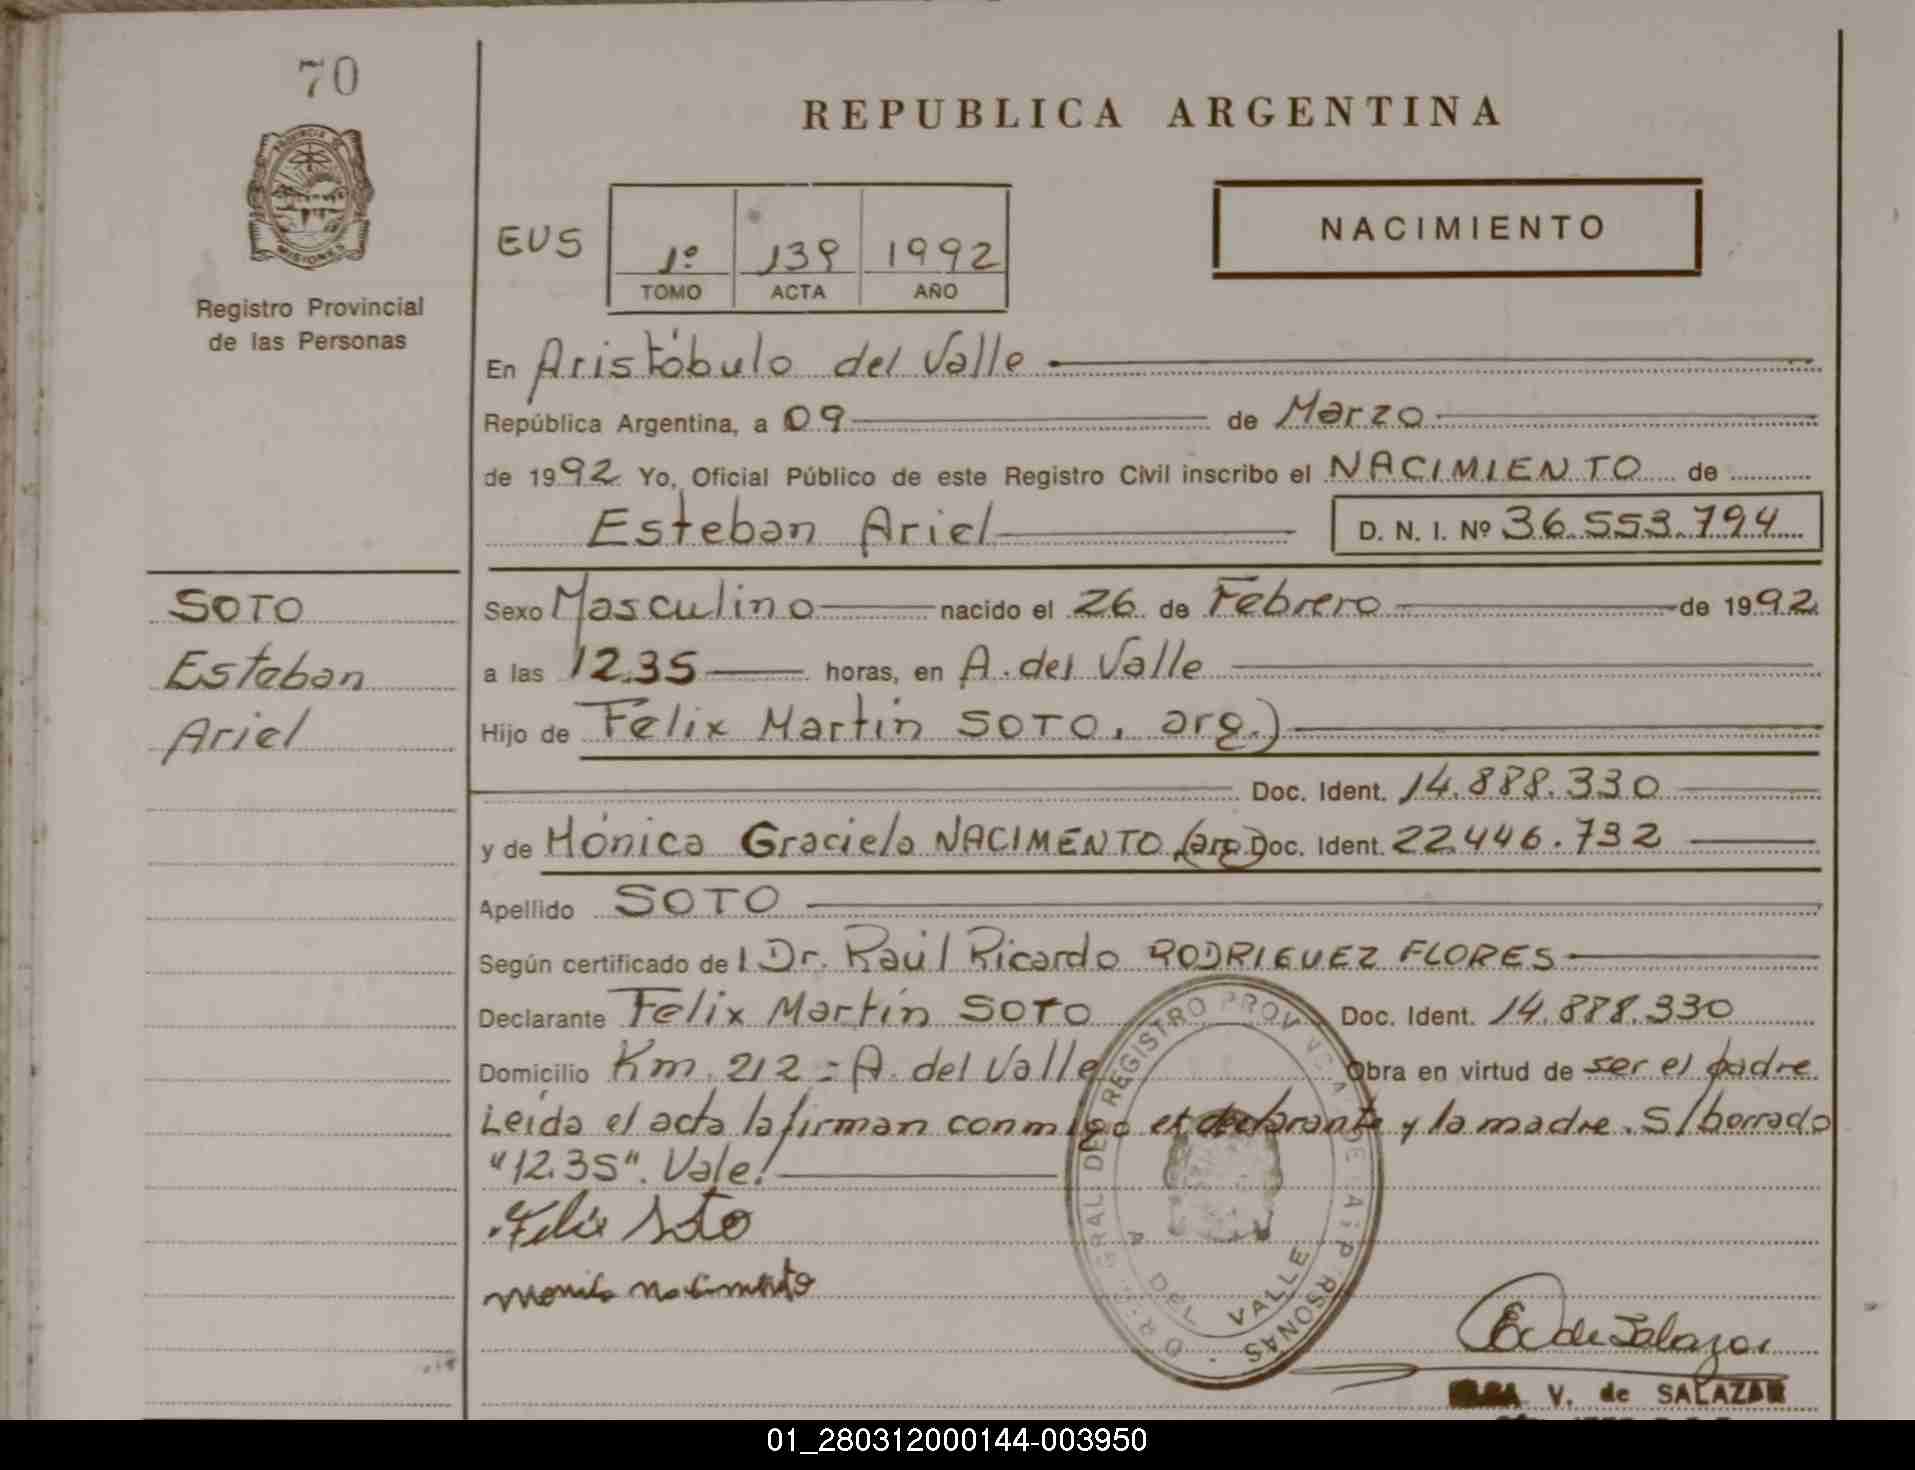 70
REPUBLICA ARGENTINA
PROVINCIA DE
MISIONES
Registro Provincial
de las Personas
EVS
1º 139 1992
TOMO ACTA AÑO
NACIMIENTO
En Aristóbulo del Valle
República Argentina, a 09 de Marzo
de 1992 Yo, Oficial Público de este Registro Civil inscribo el NACIMIENTO de
Esteban Ariel D. N. I. Nº 36.553.794
SOTO
Esteban
Ariel
Sexo Masculino nacido el 26 de Febrero de 1992
a las 12.35 horas, en A. del Valle
Hijo de Felix Martín SOTO, arg.)
Doc. Ident. 14.888.330
y de Mónica Graciela NACIMENTO (arg) Doc. Ident. 22.446.732
Apellido SOTO
Según certificado de l Dr. Raúl Ricardo RODRIGUEZ FLORES
Declarante Felix Martín SOTO Doc. Ident. 14.888.330
Domicilio Km. 212 = A. del Valle Obra en virtud de ser el padre
Leída el acta la firman conmigo el declarante y la madre. S/borrado
"12.35". Vale!
Felix Soto
Monica Nacimento
REGISTRO
A. DEL VALLE
de Salazar
V. de SALAZAR
01_280312000144-003950